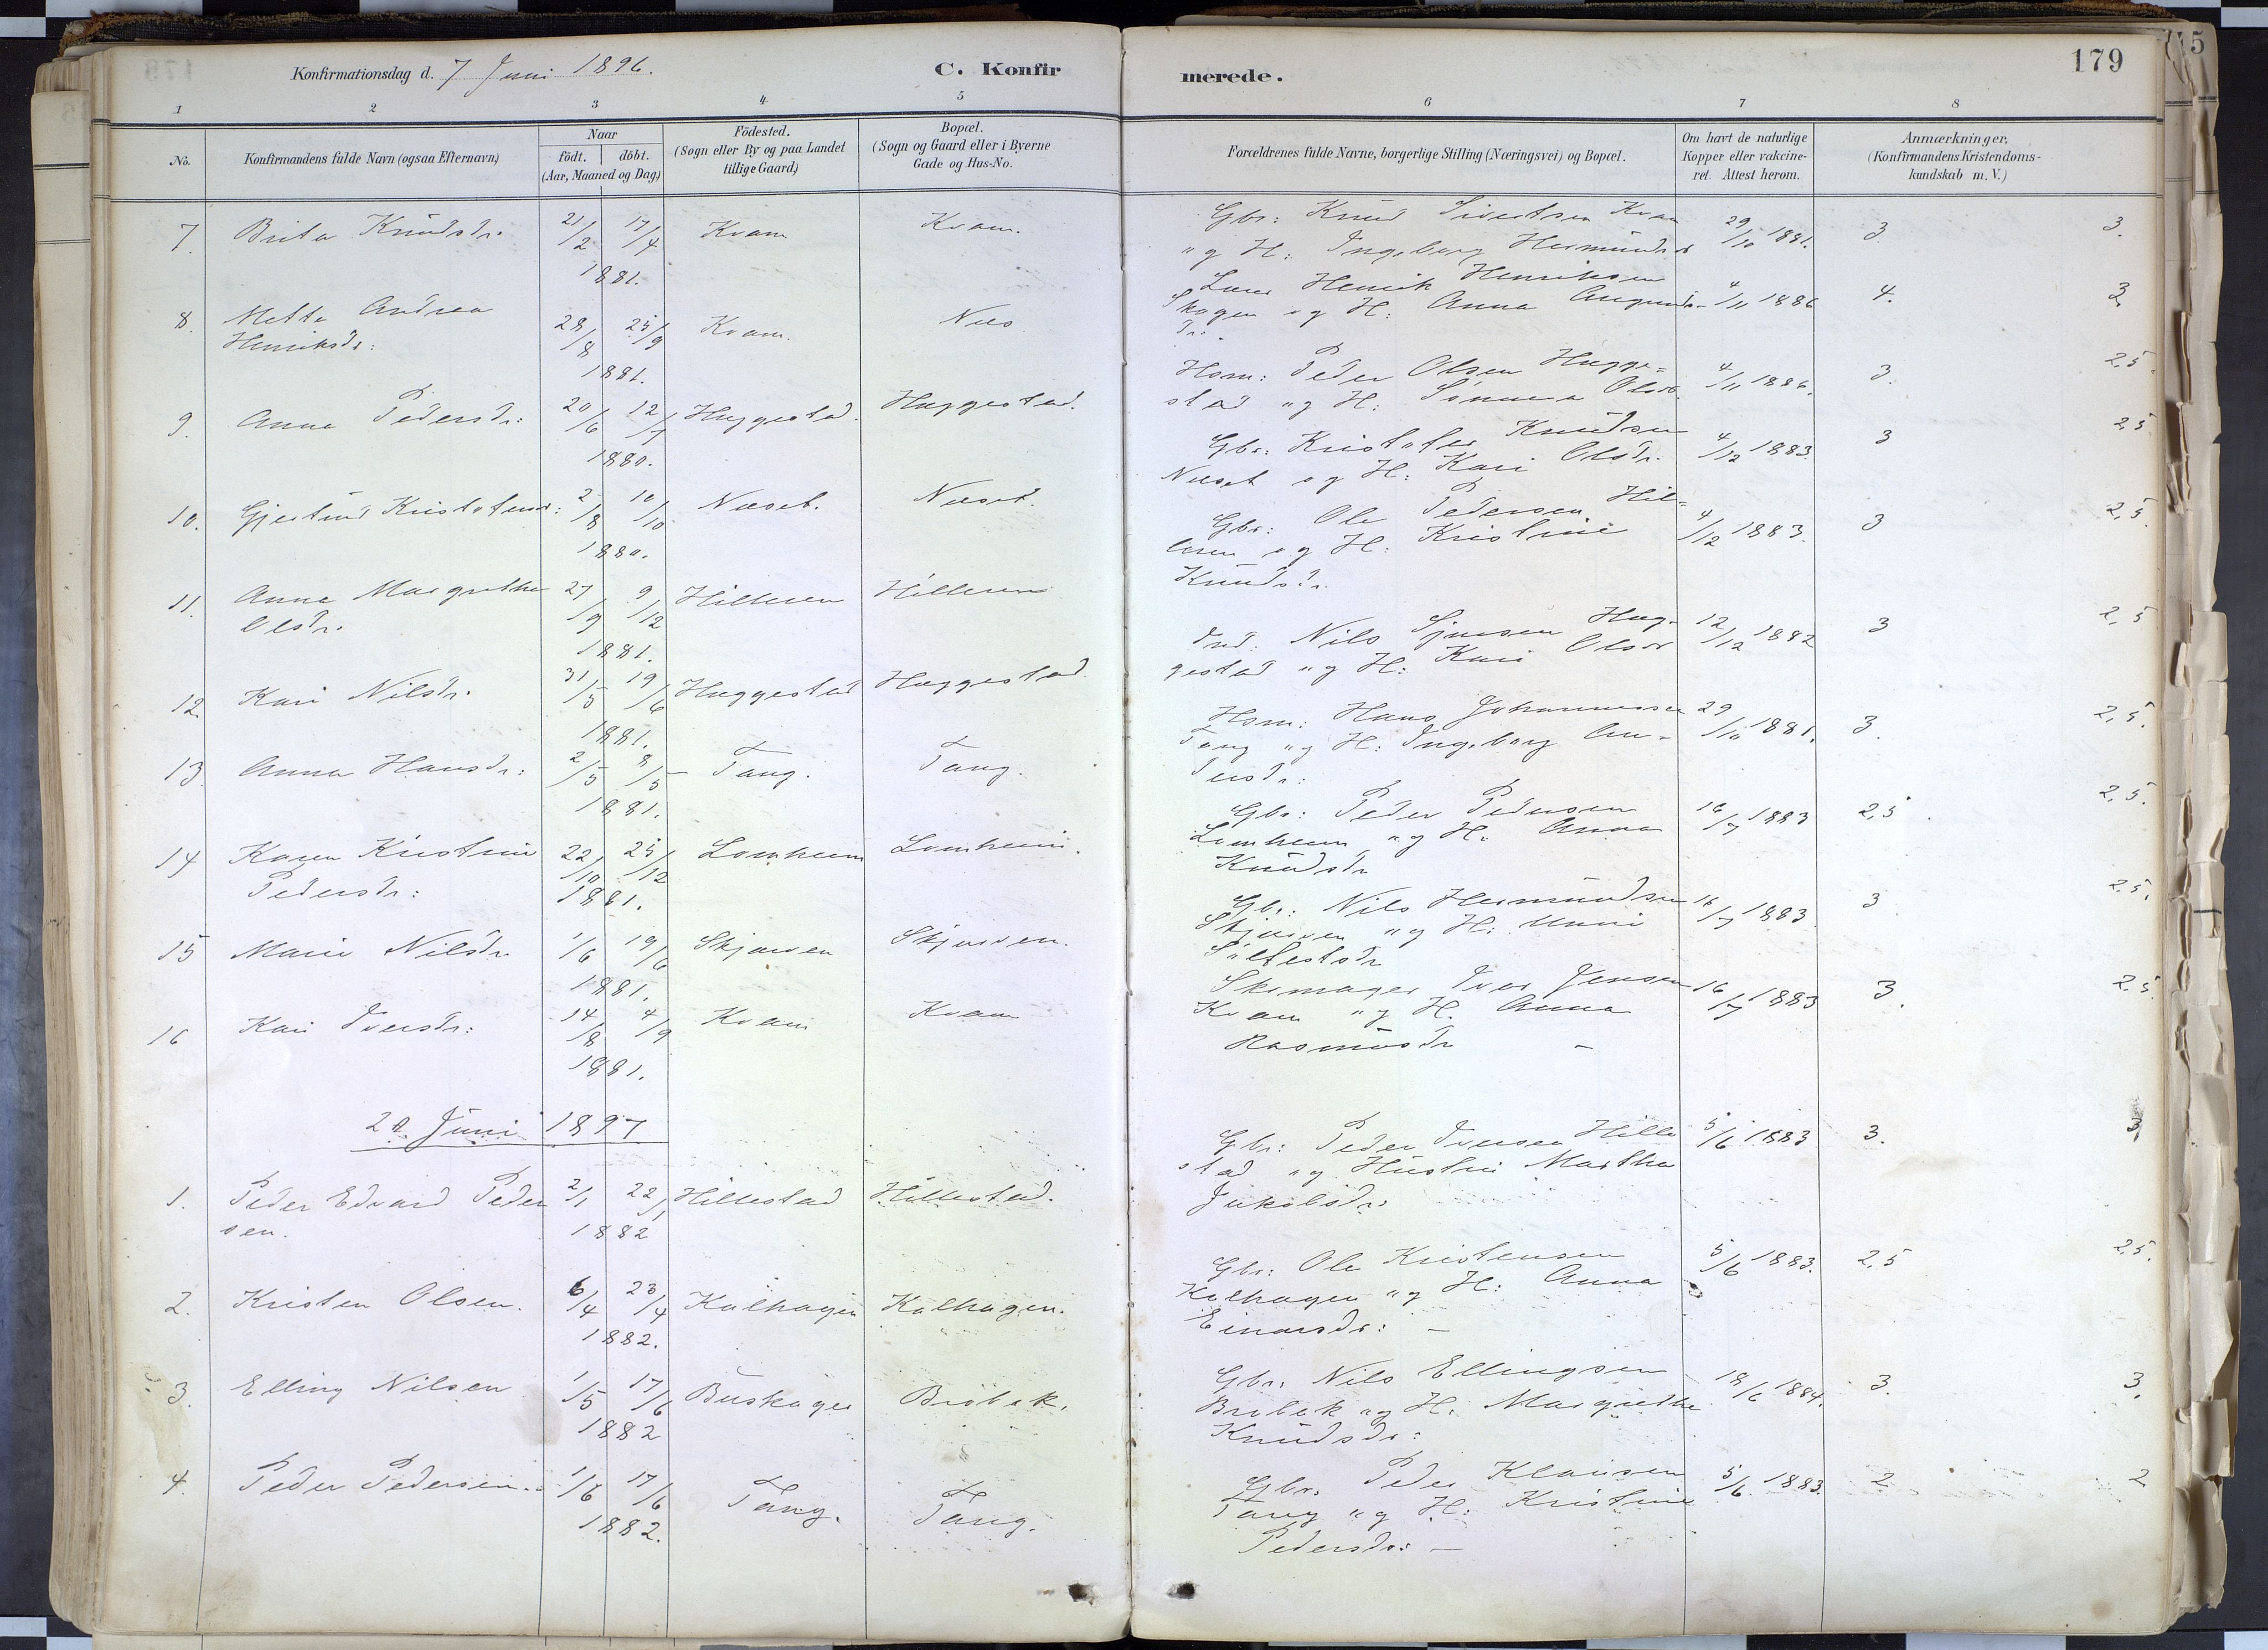 Konfirmationsdag d. 7 Juni 1896.
C. Konfirmerede.
179
1 2 3 4 5 6 7 8
No.
Konfirmandens fulde Navn (ogsaa Efternavn)
Naar
födt. | döbt.
(Aar, Maaned og Dag)
Födested.
(Sogn eller By og paa Landet
tillige Gaard)
Bopæl.
(Sogn og Gaard eller i Byerne
Gade og Hus-No.
Forældrenes fulde Navne, borgerlige Stilling (Næringsvei) og Bopæl.
Om havt de naturlige
Kopper eller vakcine-
ret. Attest herom.
Anmærkninger,
(Konfirmandens Kristendoms-
kundskab m. V.)
7. Brita Knudsdr. 21/2 17/4 Kvam Kvam. Gbr: Knud Sivertsen Kvam 29/10 1881. 3 3.
1881. og H: Ingeborg Hermundsd
8. Mette Andrea 28/8 25/9 Kvam. Nes Henrik Henriksen 4/11 1886 4. 3
Henriksdr: 1881. Skogen og H: Anna
dr:
9. Anna Pedersdr: 20/6 12/7 Huggestad. Huggestad. Hsm: Peder Olsen Hugge- 4/11 1886. 3. 2,5.
1880. stad og H: Synneva Olsd.
10. Gjertrud Kristofersd: 2/8 10/10 Næset. Næset. Gbr: Kristofer Knudsen 4/12 1883. 3 2,5
1880. Næset og H: Kari Olsdr.
11. Anna Margrethe 27/9 9/12 Hilleren Hilleren Gbr: Ole Pedersen Hil- 4/12 1883. 3 2,5.
Olsdr. 1881. leren og H: Kristine
Knudsdr.
12. Kari Nilsdr. 31/5 19/6 Huggestad Huggestad. Ind: Nils Hug- 12/12 1882 3 2,5
1881. gestad og H: Kari Olsdr
13. Anna Hansdr: 2/5 8/5 Tang. Tang. Hsm: Hans Johannessen 29/10 1881. 3. 2,5.
1881. Tang og H: Ingeborg An-
dersdr:
14 Karen Kristine 22/10 25/12 Lomheim Lomheim. Gbr: Peder Pedersen 16/7 1883 2,5 2,5.
Pedersdr: 1881. Lomheim og H: Anna
Knudsdr
15 Marie Nilsdr 1/6 19/6 Skjerven Skjerven. Gbr: Nils Hermundsen 16/7 1883 3 2,5.
1881. Skjerven og H: Unni
Sølfestsdr
16 Kari Iversdr: 14/8 4/9 Kvam Kvam Skomager Iver Jensen 16/7 1883 3. 2,5.
1881. Kvam og H. Anna
Rasmusdr –
20 Juni 1897
1. Peder Edvard Peder 2/1 22/1 Hillestad Hillestad. Gbr: Peder Iversen Hille 5/6 1883 3. 3
sen. 1882 stad og Hustru Martha
Jakobsdr.
2. Kristen Olsen. 6/4 23/4 Kalhagen Kalhagen. Gbr: Ole Kristensen 5/6 1883. 2,5 2,5.
1882. Kalhagen og H: Anna
Einarsdr: –
3. Elling Nilsen 1/5 17/6 Buskager Bröbak. Gbr. Nils Ellingsen 18/6 1884. 3. 3.
1882 Bröbak og H. Margrethe
Knudsdr:
4. Peder Pedersen. 1/6 17/6 Tang. Tang. Gbr. Peder Klausen 5/6 1883. 2 2
1882. Tang og H: Kristine
Pedersdr: –